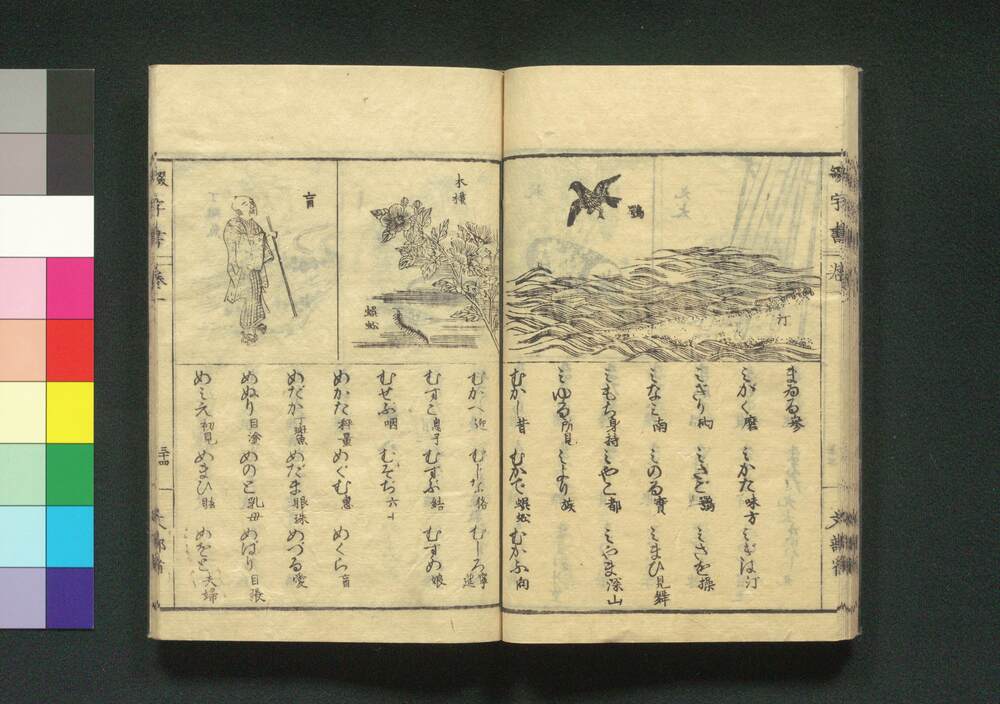 鶚
汀
まゐる 參
みがく 磨 みかた 味方 みぎは 汀
みさご 鶚 みさを 操
みなみ 南 みのる 實 みまひ 見舞
みもち 身持 みやこ 都 みやま 深山
みゆる 所見 みより 族
むかし 昔 むかで 蜈蚣 むかふ 向
木槿
蜈蚣
盲
むかへ 迎 むじな 狢 むしろ 寧 筵
むすこ 息子 むすぶ 結 むすめ 娘
むせぶ 咽 むそぢ 六十
めかた 秤量 めぐむ 惠 めくら 盲
めだか 丁斑魚 めだま 眼珠 めづる 愛
めぬり 目塗 めのと 乳母 めはり 目張
めみえ 初見 めまひ 眩 めをと 夫婦
綴字書 卷一
三十四
文部省